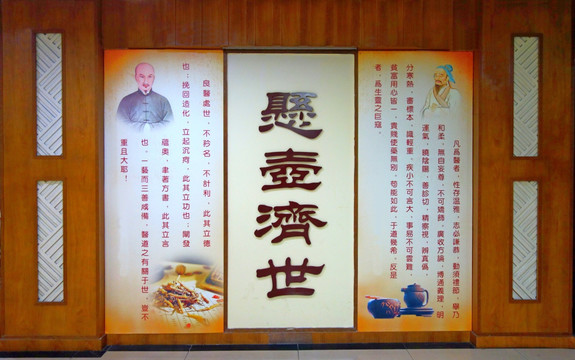 凡爲醫者，性存溫雅，志必謙恭，動須禮節，舉乃
和柔，無自妄尊，不可矯飾。廣收方論，博通義理，明
運氣，曉陰陽，善診切，精察視，辨真僞，
分寒熱，審標本，識輕重。疾小不可言大，事易不可雲難，
貧富用心皆一，貴賤使藥無別。苟能如此，于道幾希，反是
者，爲生靈之巨寇。
懸壺濟世
良醫處世，不矜名，不計利，此其立德
也；挽回造化，立起沉疴，此其立功也；闡發
蘊奧，聿著方書，此其立言
也。一藝而三善咸備，醫道之有關于世，豈不
重且大耶！